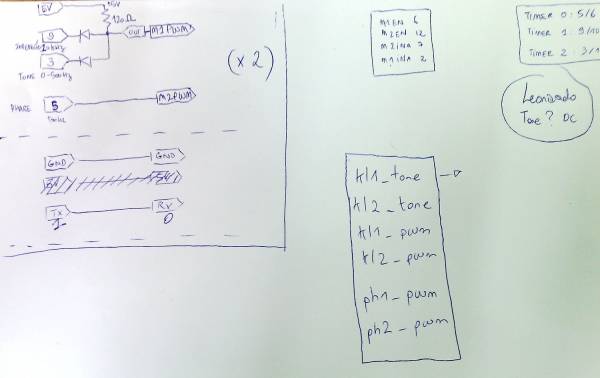 5V
+5V
120Ω
9
OUT
M1PWM
3
TONE 0-500Hz
(x2)
PHASE
5
M2PWM
GND
GND
TX
RX
1
0
M1EN 6
M2EN 12
M1INA 7
M1INA 2
TIMER 0: 5/6
TIMER 1: 9/10
TIMER 2: 3/1
Leonardo
Tone? DC
kl1_tone
kl2_tone
kl1_pwm
kl2_pwm
ph1_pwm
ph2_pwm